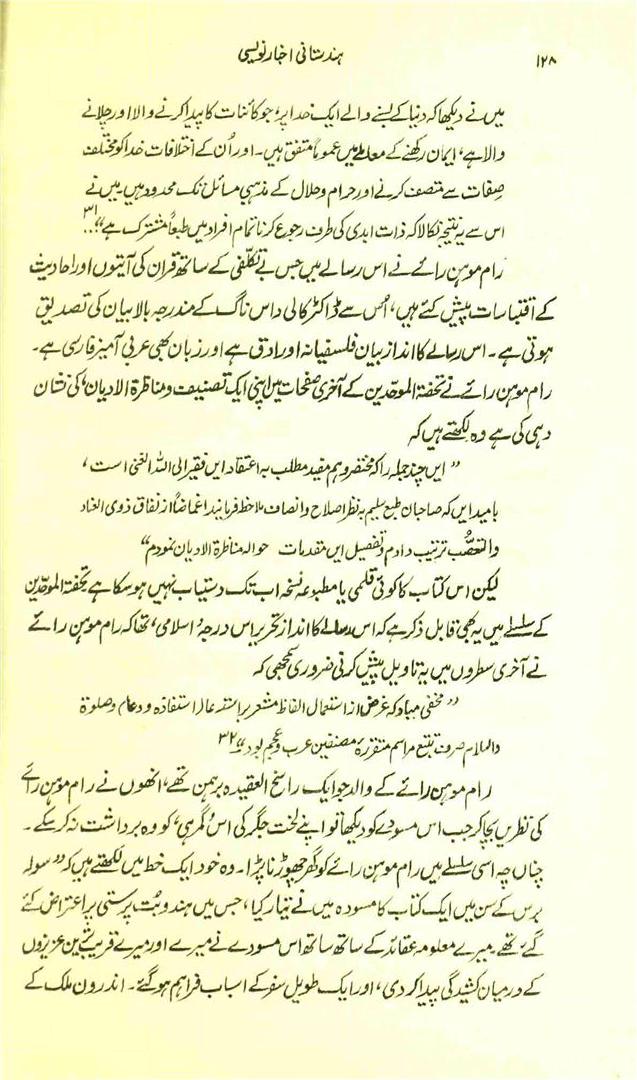 ۱۲۸ ہندستانی اخبار نویسی
میں نے دیکھا کہ دنیا کے بسنے والے ایک خدا پر، جو کائنات کا پیدا کرنے والا اور چلانے
والا ہے، ایمان رکھنے کے معاملے میں عموماً متفق ہیں۔ اور اُن کے اختلافات خدا کو مختلف
صفات سے متصف کرنے اور حرام و حلال کے مذہبی مسائل تک محدود ہیں۔ میں نے
اس سے یہ نتیجہ نکالا کہ ذات ابدی کی طرف رجوع کرنا تمام افراد میں طبعاً مشترک ہے"... ۳۱
رام موہن رائے نے اس رسالے میں جس بے تکلّفی کے ساتھ قرآن کی آیتوں اور احادیث
کے اقتباسات پیش کئے ہیں، اُس سے ڈاکٹر کالی داس ناگ کے مندرجہ بالا بیان کی تصدیق
ہوتی ہے۔ اس رسالے کا انداز بیان فلسفیانہ اور ادق ہے اور زبان بھی عربی آمیز فارسی ہے۔
رام موہن رائے نے تحفۃ الموحّدین کے آخری صفحات میں اپنی ایک تصنیف "مناظرۃ الادیان" کی نشان
دہی کی ہے وہ لکھتے ہیں کہ
"ایں چند جملہ را کہ مختصر و ہم مفید مطلب بہ اعتقاد ایں فقیر الی اللہ الغنی است،
بامید ایں کہ صاحبان طبع سلیم بہ نظر اصلاح و انصاف ملاحظہ فرمایند اغماضاً از نفاق ذوی العناد
والتعصّب ترتیب دادم و تفصیل ایں مقدمات حوالہ مناظرۃ الادیان نمودم"
لیکن اس کتاب کا کوئی قلمی یا مطبوعہ نسخہ اب تک دستیاب نہیں ہو سکا ہے تحفۃ الموحّدین
کے سلسلے میں یہ بھی قابل ذکر ہے کہ اس رسالے کا انداز تحریر اس درجہ 'اسلامی' تھا کہ رام موہن رائے
نے آخری سطروں میں یہ تاویل پیش کرنی ضروری سمجھی کہ
"مخفی مباد کہ غرض از استعمال الفاظ مشعر بر استفادہ و دعا و صلوۃ
والسلام صرف تتبع مراسم متقررہ مصنفین عرب و عجم بود" ۳۲
رام موہن رائے کے والد جو ایک راسخ العقیدہ برہمن تھے، انھوں نے رام موہن رائے
کی نظریں بچا کر جب اس مسودے کو دیکھا تو اپنے لخت جگر کی اس 'گمرہی' کو وہ برداشت نہ کر سکے۔
چناں چہ اسی سلسلے میں رام موہن رائے کو گھر چھوڑنا پڑا۔ وہ خود ایک خط میں لکھتے ہیں کہ "سولہ
برس کے سن میں ایک کتاب کا مسودہ میں نے تیار کیا، جس میں ہندو بُت پرستی پر اعتراض کئے
گئے تھے۔ میرے معلومہ عقائد کے ساتھ ساتھ اس مسودے نے میرے اور میرے قریب ترین عزیزوں
کے درمیان کشیدگی پیدا کر دی، اور ایک طویل سفر کے اسباب فراہم ہو گئے۔ اندرون ملک کے